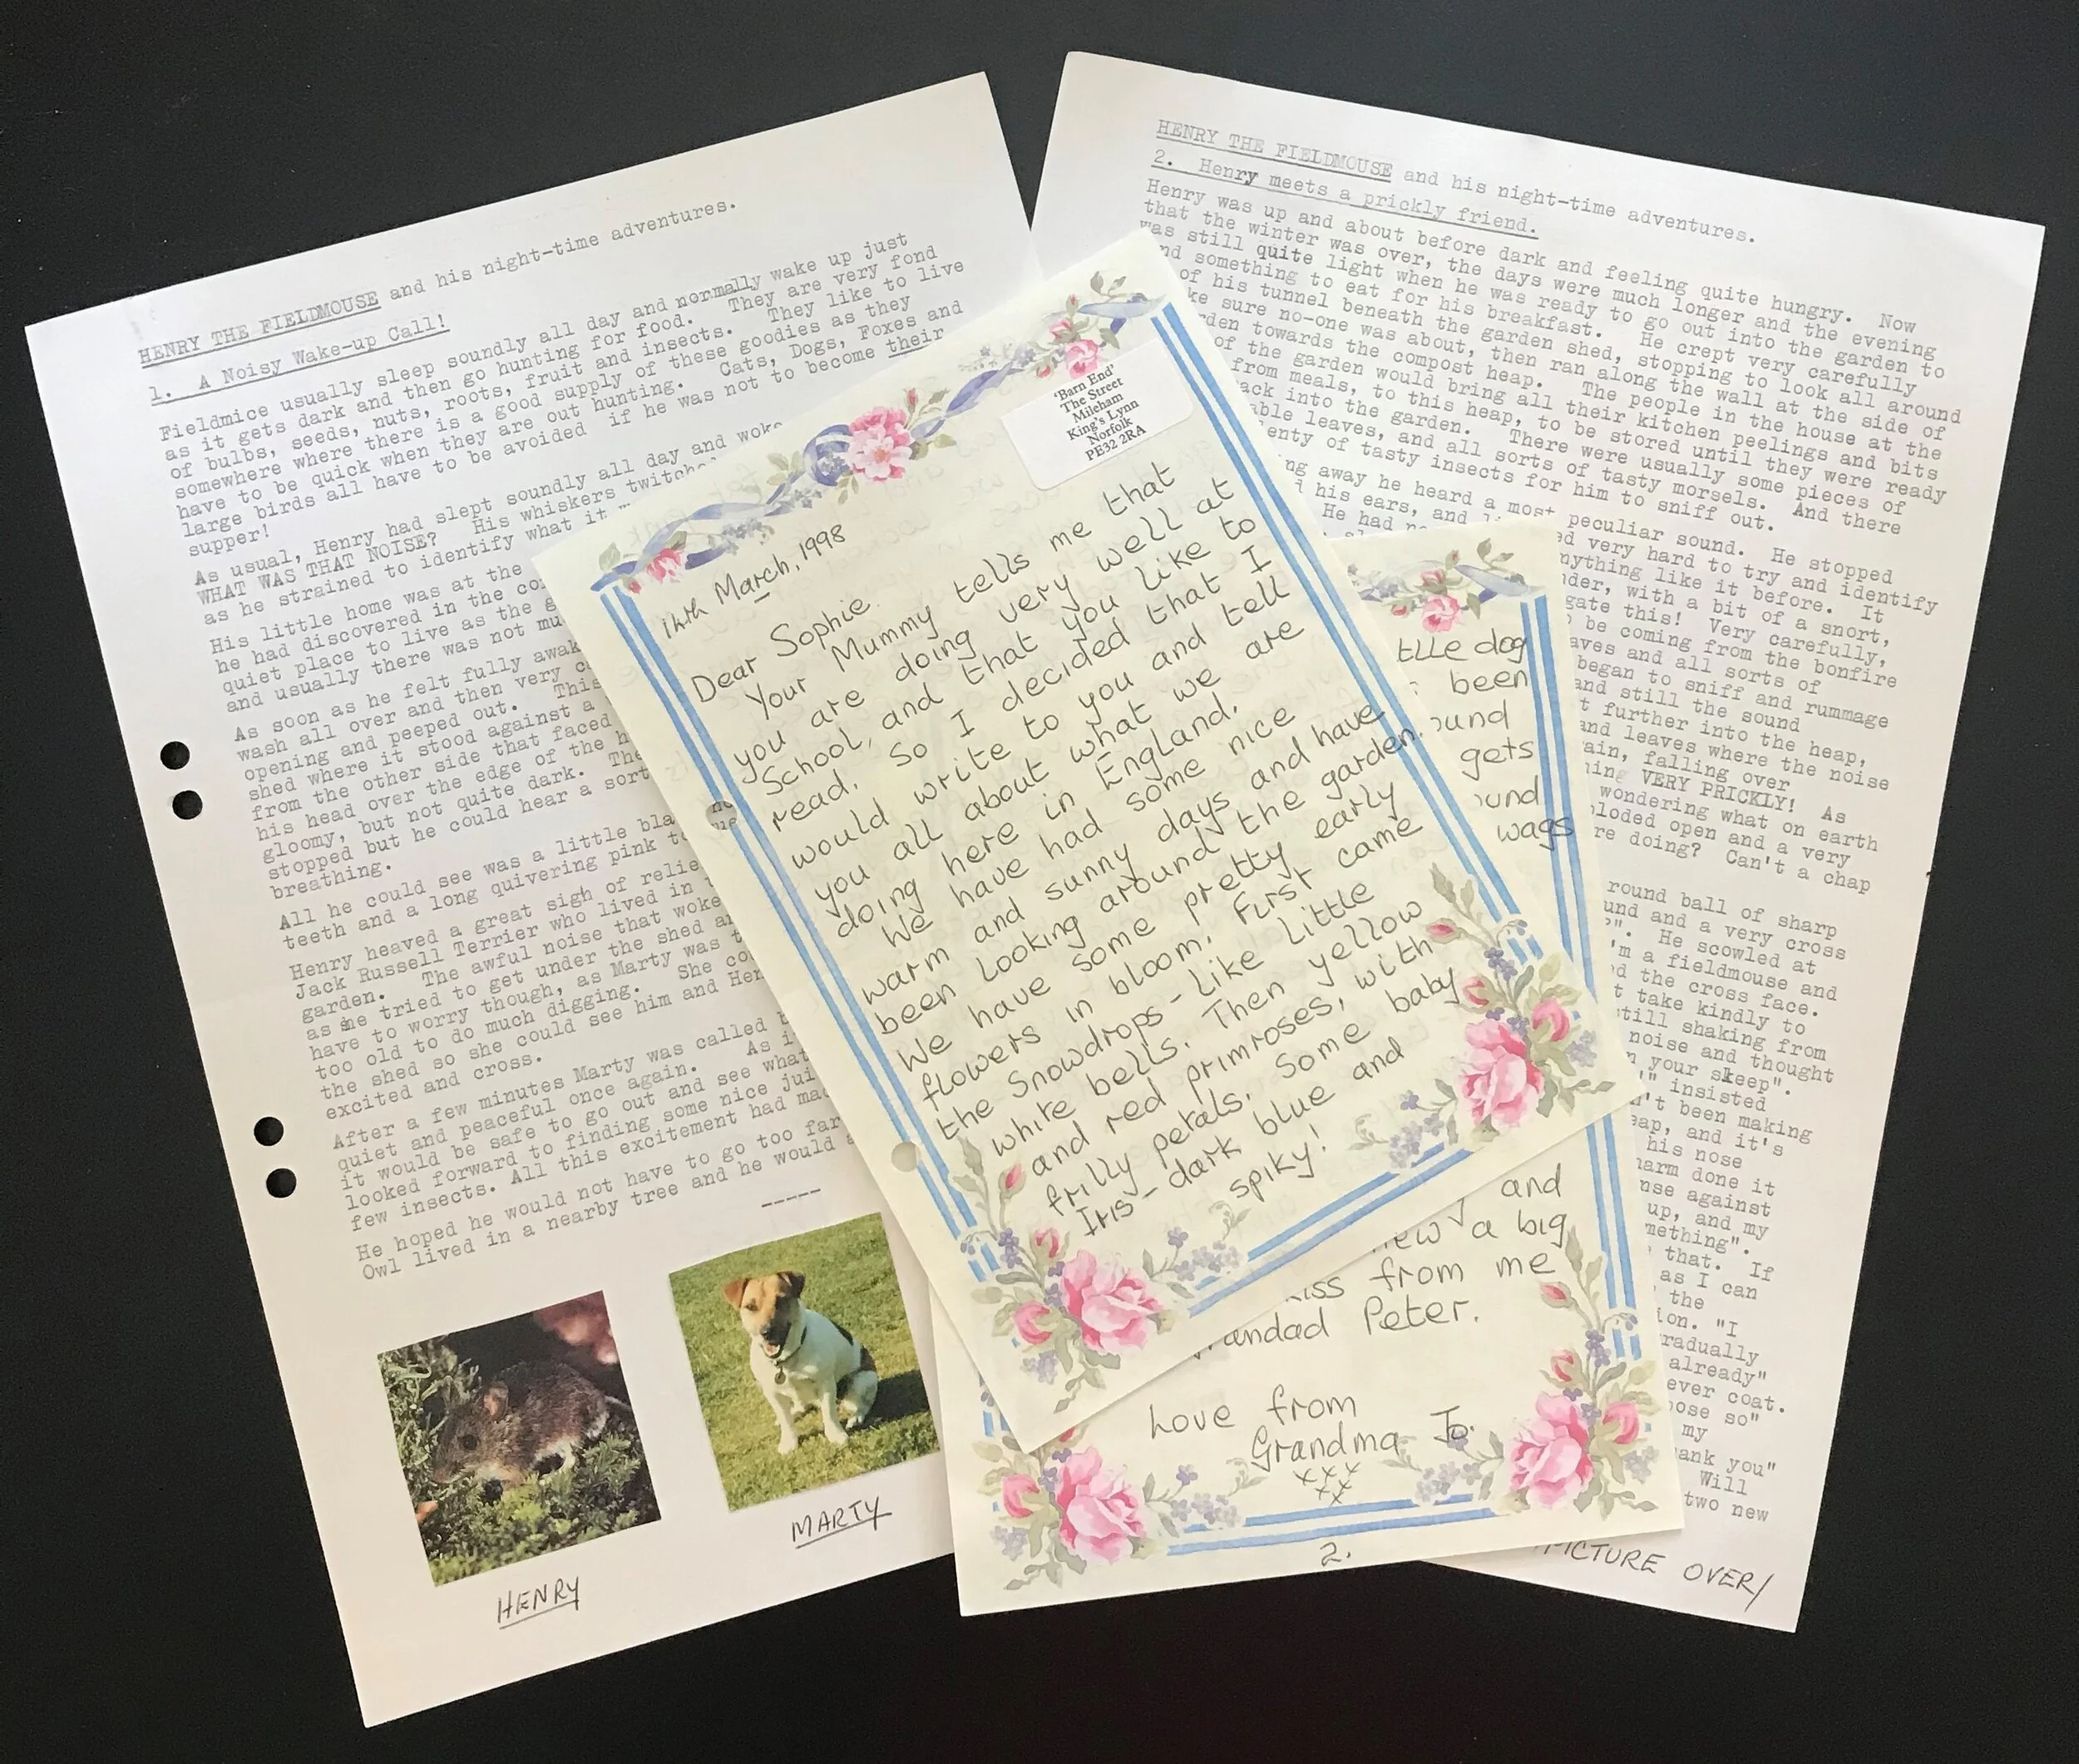 HENRY THE FIELDMOUSE and his night-time adventures.
1. A Noisy Wake-up Call!
Fieldmice usually sleep soundly all day and normally wake up just
as it gets dark and then go hunting for food. They are very fond
of bulbs, seeds, nuts, roots, fruit and insects. They like to live
somewhere where there is a good supply of these goodies as they
have to be quick when they are out hunting. Cats, Dogs, Foxes and
large birds all have to be avoided if he was not to become their
supper!
As usual, Henry had slept soundly all day and woke
WHAT WAS THAT NOISE? His whiskers twitched
as he strained to identify what it
His little home was at the
he had discovered in the
quiet place to live as the
and usually there was not
As soon as he felt fully
wash all over and then very
opening and peeped out. This
shed where it stood against a
from the other side that faced
his head over the edge of the
gloomy, but not quite dark. The
stopped but he could hear a sort
breathing.
All he could see was a little
teeth and a long quivering pink
Henry heaved a great sigh of
Jack Russell Terrier who lived in
garden. The awful noise that woke
as she tried to get under the shed
have to worry though, as Marty was
too old to do much digging. She
the shed so she could see him and
excited and cross.
After a few minutes Marty was called
quiet and peaceful once again. As
it would be safe to go out and see what
looked forward to finding some nice
few insects. All this excitement had
He hoped he would not have to go too far
Owl lived in a nearby tree and he would
-----
HENRY
MARTY
'Barn End'
The Street
Mileham
King's Lynn
Norfolk
PE32 2RA
14th March, 1998
Dear Sophie
Your Mummy tells me that
you are doing very well at
School, and that you like to
read. So I decided that I
would write to you and tell
you all about what we are
doing here in England.
We have had some nice
warm and sunny days and have
been looking around the garden.
We have some pretty early
flowers in bloom. First came
the Snowdrops - like little
white bells. Then yellow
and red primroses, with
frilly petals. Some baby
Iris - dark blue and
spiky!
dog
been
gets
wags
and
a big
from me
Peter.
Love from
Grandma Jo.
xxx
xx
2.
HENRY THE FIELDMOUSE and his night-time adventures.
2. Henry meets a prickly friend.
Henry was up and about before dark and feeling quite hungry. Now
that the winter was over, the days were much longer and the evening
was still quite light when he was ready to go out into the garden to
something to eat for his breakfast. He crept very carefully
of his tunnel beneath the garden shed, stopping to look all around
sure no-one was about, then ran along the wall at the side of
towards the compost heap. The people in the house at the
of the garden would bring all their kitchen peelings and bits
from meals, to this heap, to be stored until they were ready
into the garden. There were usually some pieces of
leaves, and all sorts of tasty morsels. And there
of tasty insects for him to sniff out.
away he heard a most peculiar sound. He stopped
his ears, and very hard to try and identify
He had like it before. It
with a bit of a snort,
this! Very carefully,
be coming from the bonfire
and all sorts of
began to sniff and rummage
and still the sound
further into the heap,
and leaves where the noise
falling over
VERY PRICKLY! As
wondering what on earth
open and a very
doing? Can't a chap
ball of sharp
and a very cross
He scowled at
a fieldmouse and
the cross face.
take kindly to
still shaking from
noise and thought
your sleep".
insisted
been making
and it's
his nose
done it
against
up, and my
that. If
as I can
the
"I
already"
coat.
so"
my
you"
Will
two new
PICTURE OVER/